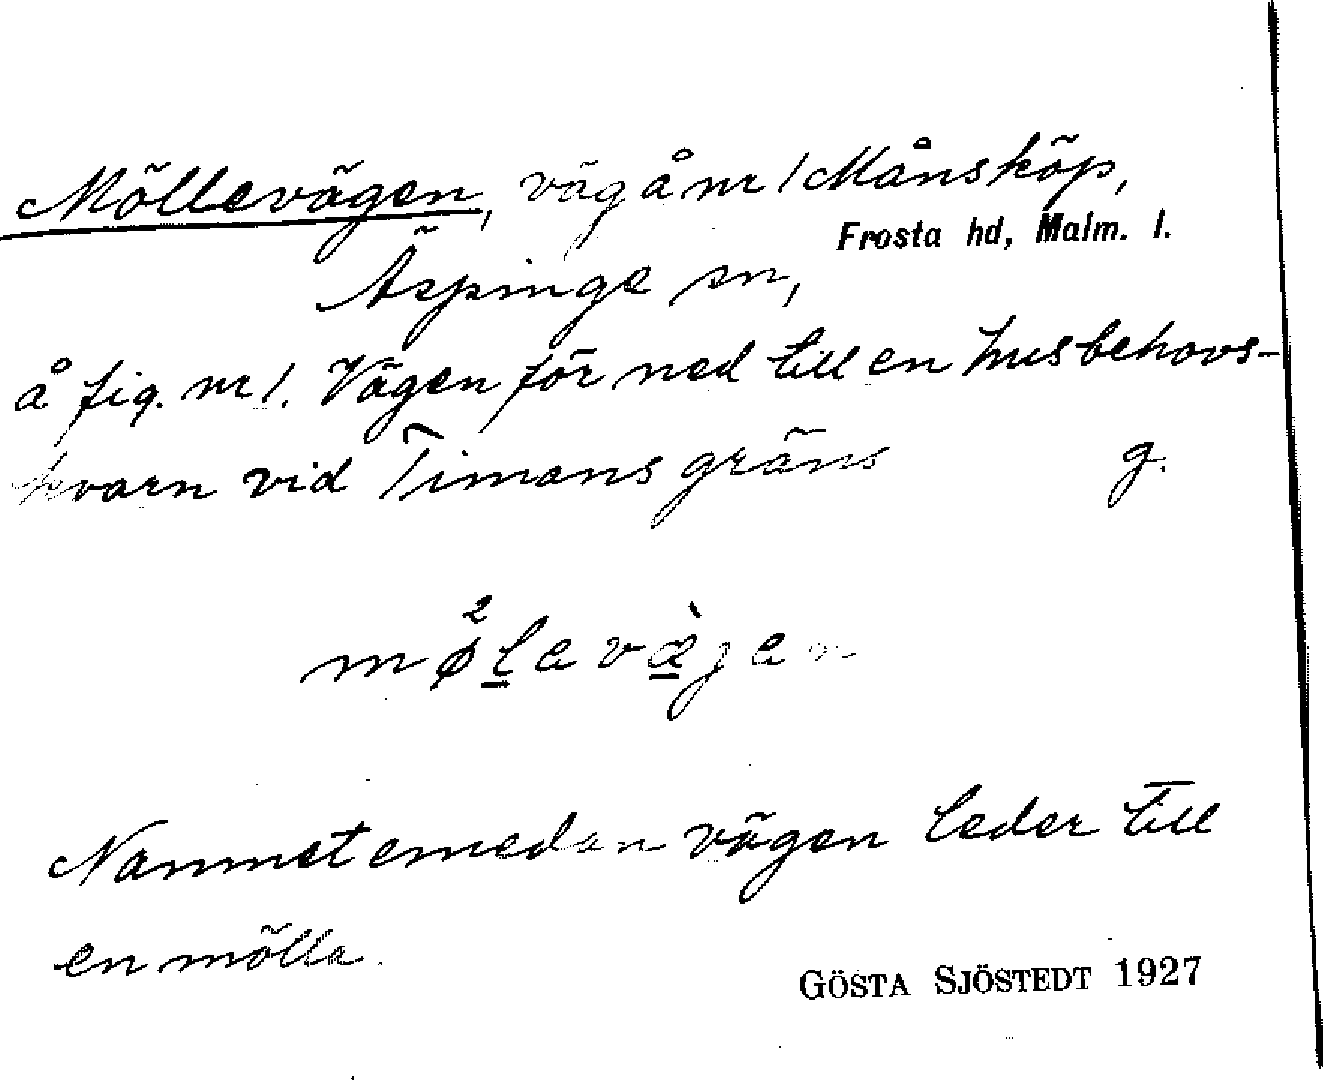 Möllevägen, väg å nr 1 Månsköp,
Frosta hd, Malm. l.
Äspinge sn,
å fig. nr 1. Vägen för ned till en husbehovs-
kvarn vid Timans gräns g.
mø̊²lavæ̀gen
Namnet emedan vägen leder till
en mölla.
GÖSTA SJÖSTEDT 1927